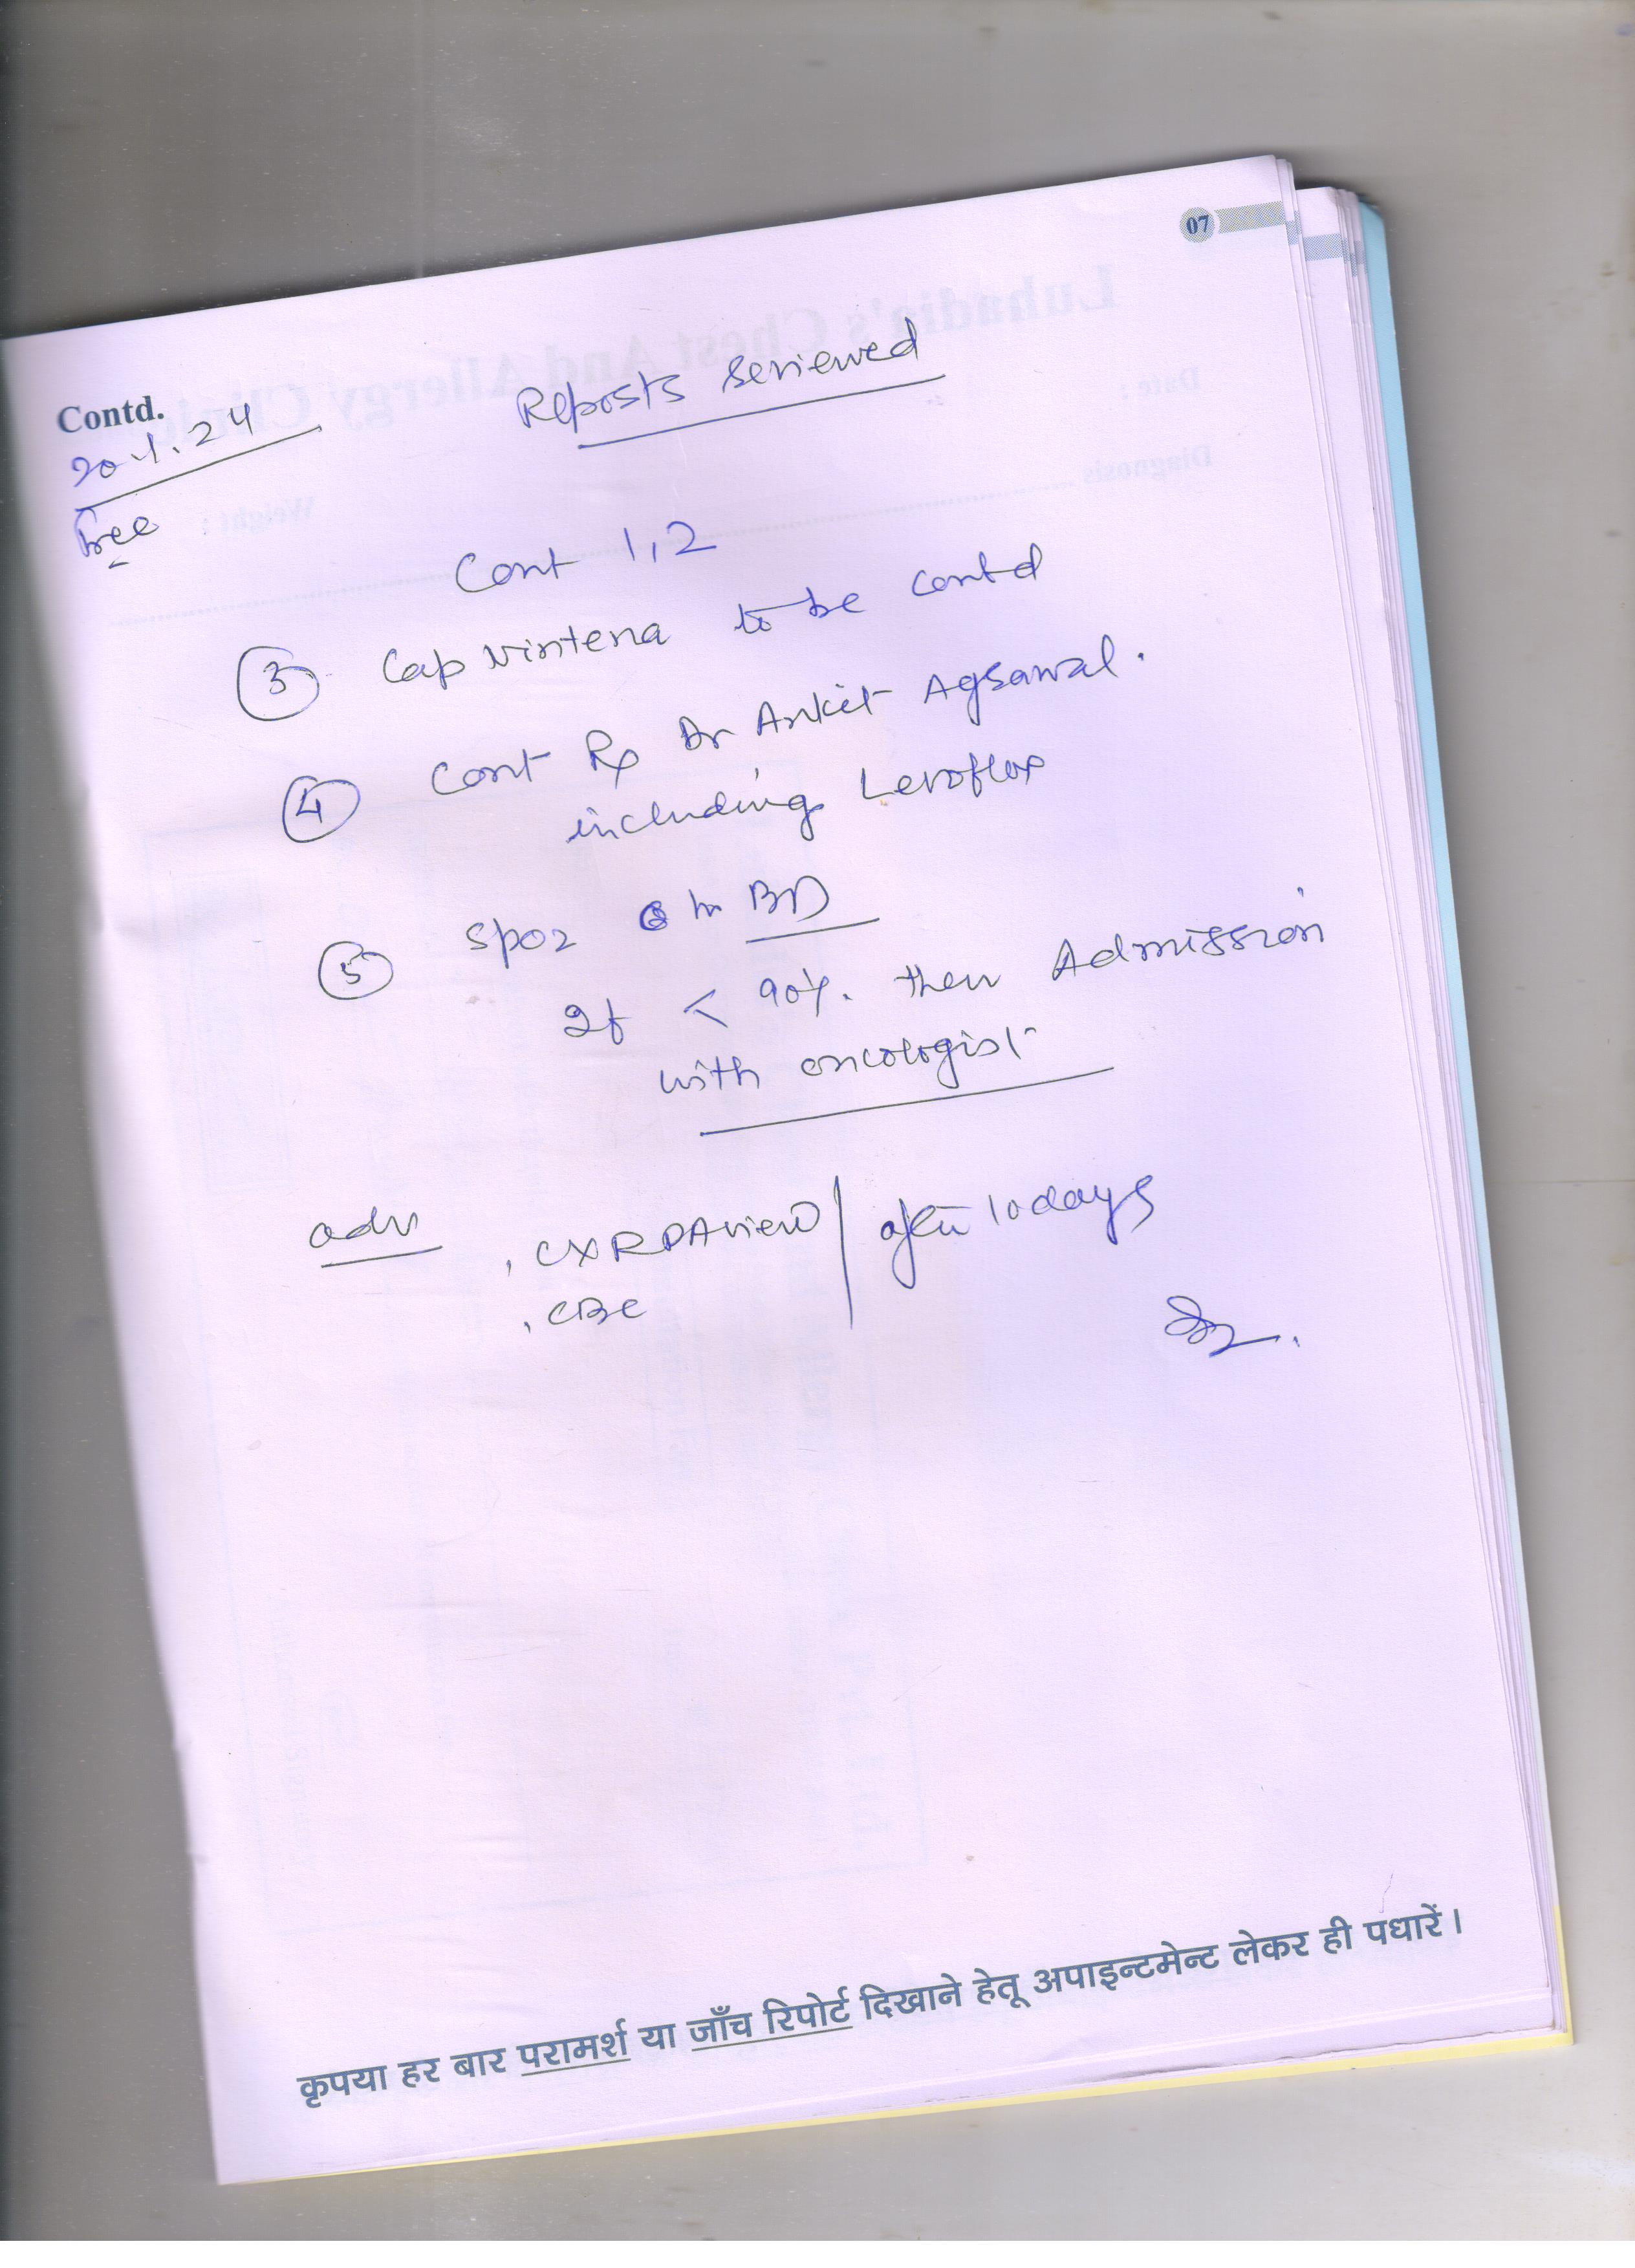 07
Contd.
20.1.24
Free
Reports reviewed
Cont 1,2
3 Cap Nintena to be contd
4 Cont Rx Dr Ankit Agrawal.
including Levoflox
5 SpO2 BD
If < 90%. then Admission
with oncologist
adv , CXR PA view / after 10 days
, CBC
कृपया हर बार परामर्श या जाँच रिपोर्ट दिखाने हेतू अपाइन्टमेन्ट लेकर ही पधारें।